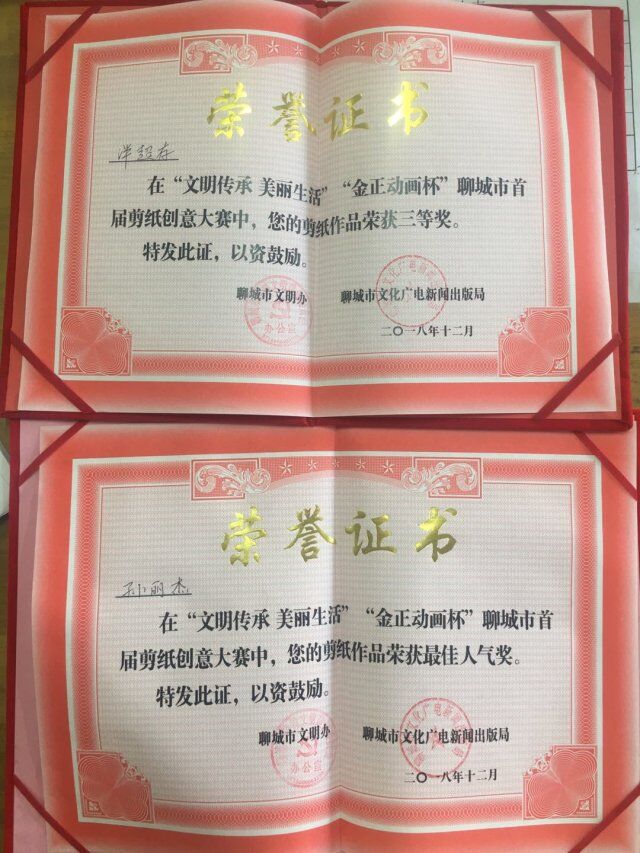 荣誉证书
在“文明传承 美丽生活”“金正动画杯”聊城市首
届剪纸创意大赛中，您的剪纸作品荣获三等奖。
特发此证，以资鼓励。
聊城市文明办 聊城市文化广电新闻出版局
办公室
二〇一八年十二月
荣誉证书
孙丽杰
在“文明传承 美丽生活”“金正动画杯”聊城市首
届剪纸创意大赛中，您的剪纸作品荣获最佳人气奖。
特发此证，以资鼓励。
聊城市文明办 聊城市文化广电新闻出版局
办公室
二〇一八年十二月